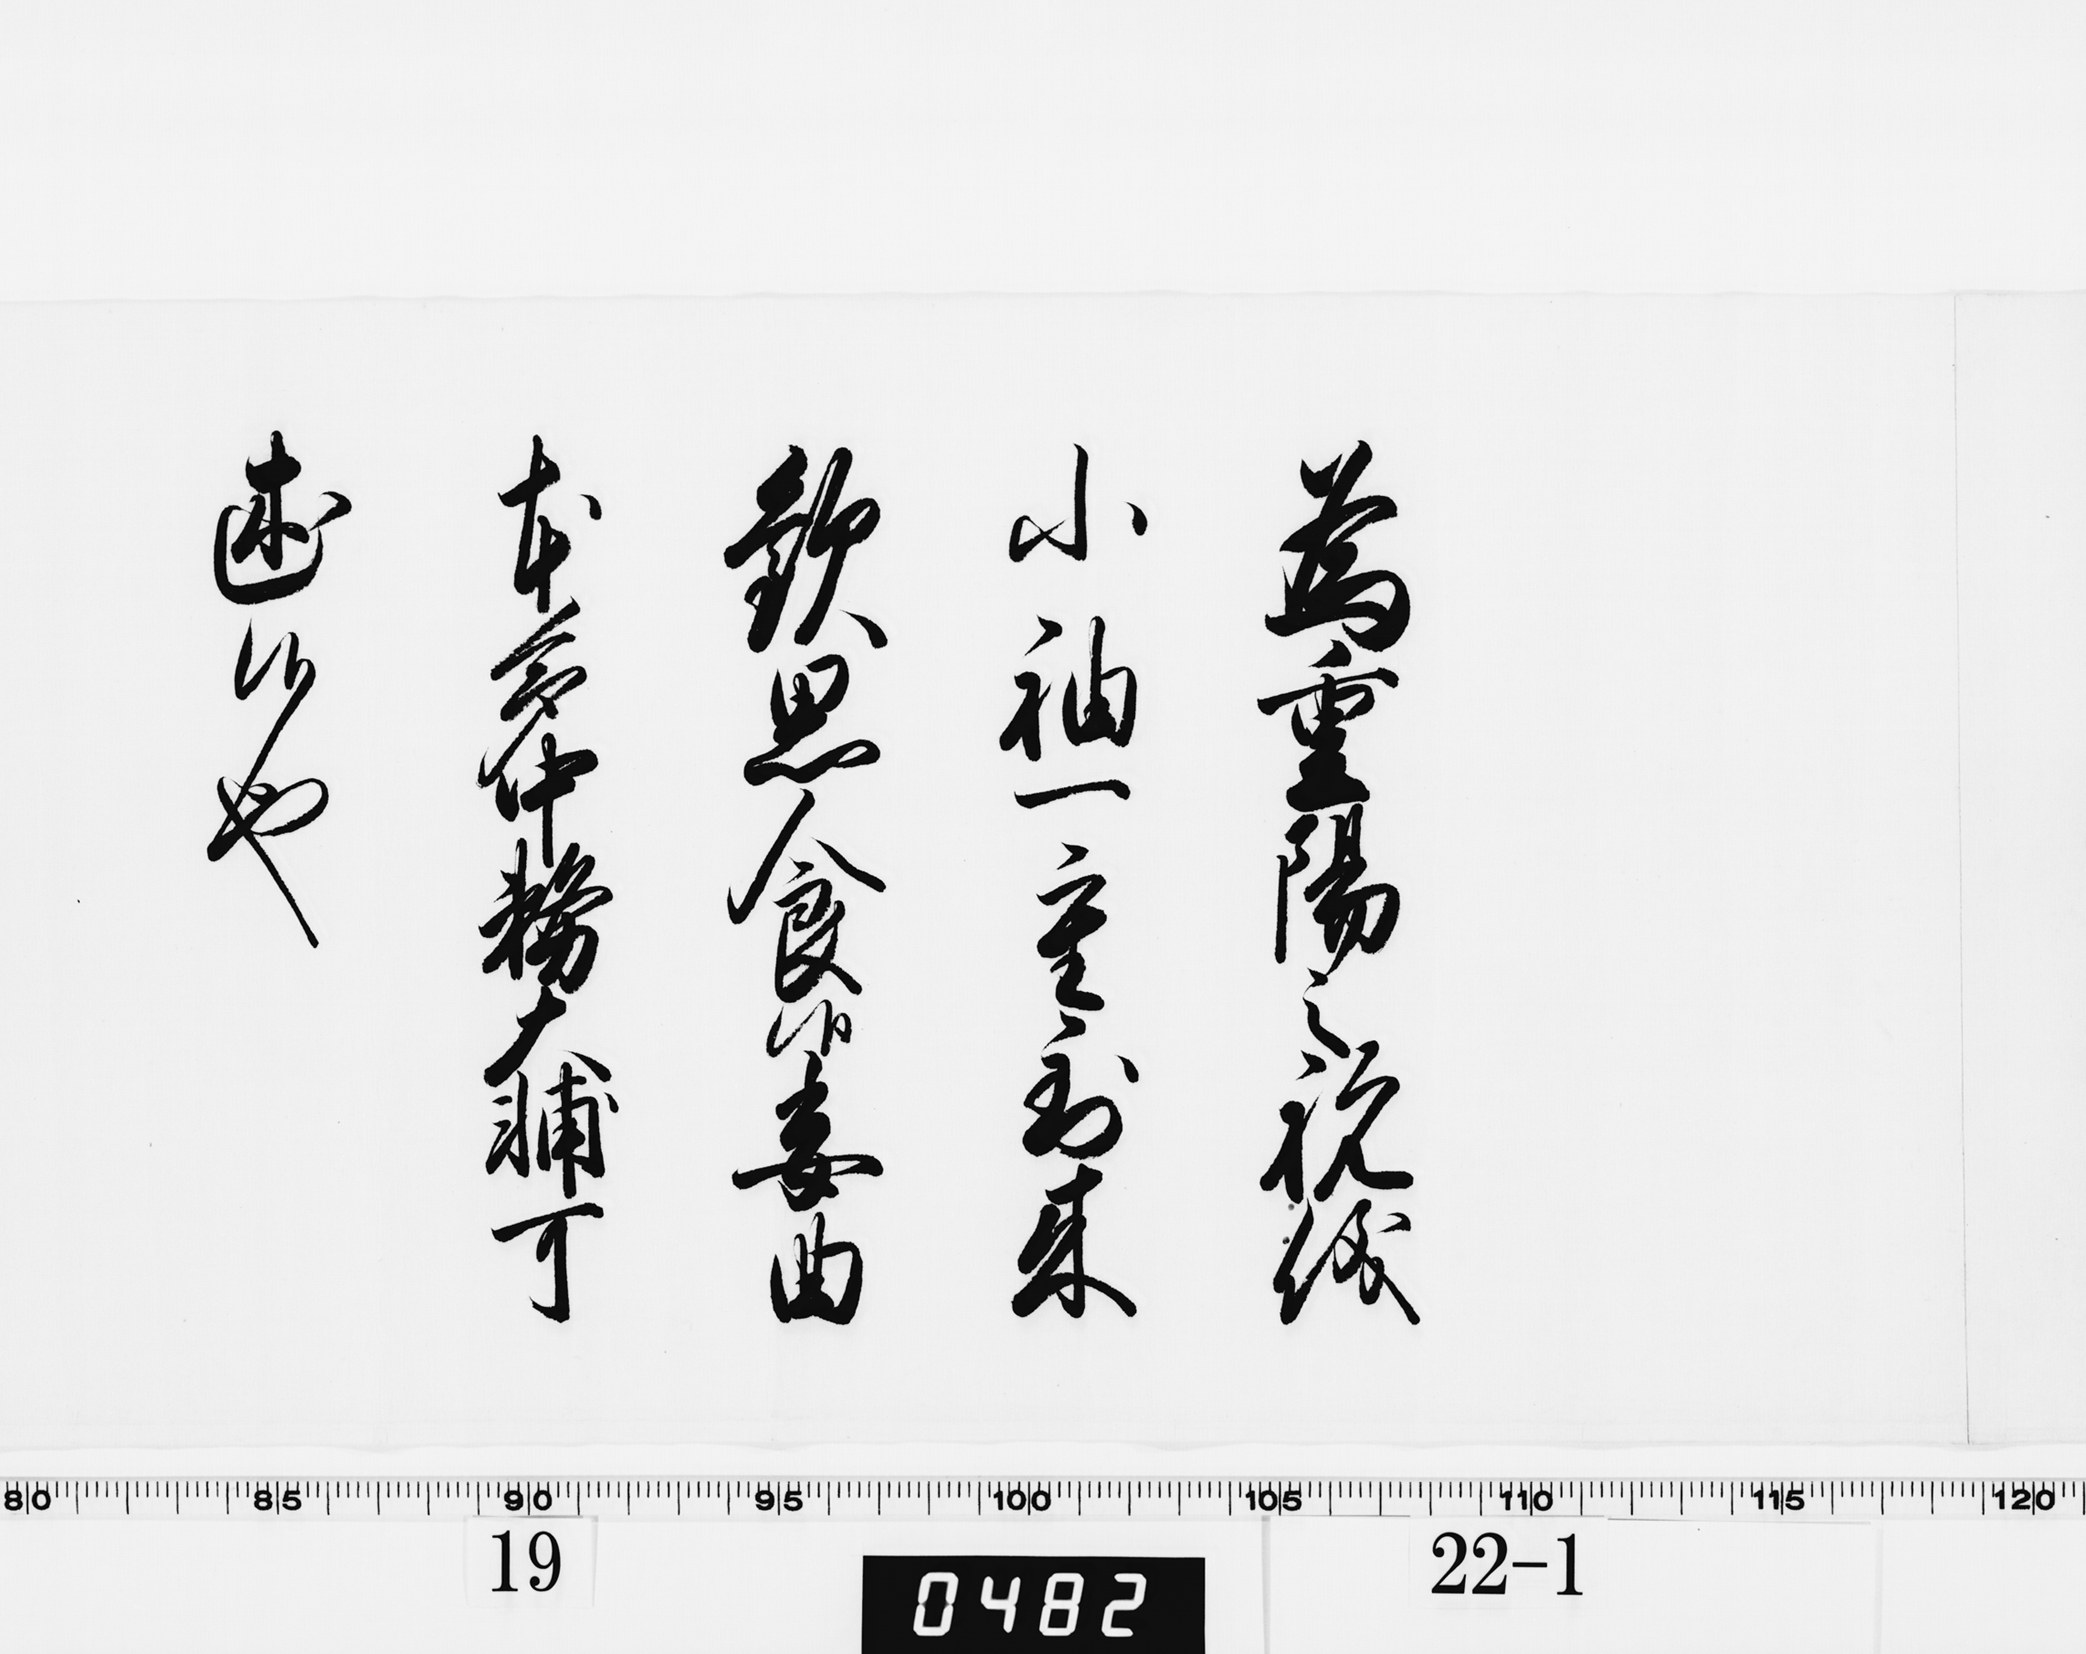 為重陽之祝儀
小袖一重到来
歓思食候委曲
本多中務大輔可
述候也
80 85 90 95 100 105 110 115 120
19
0482
22-1